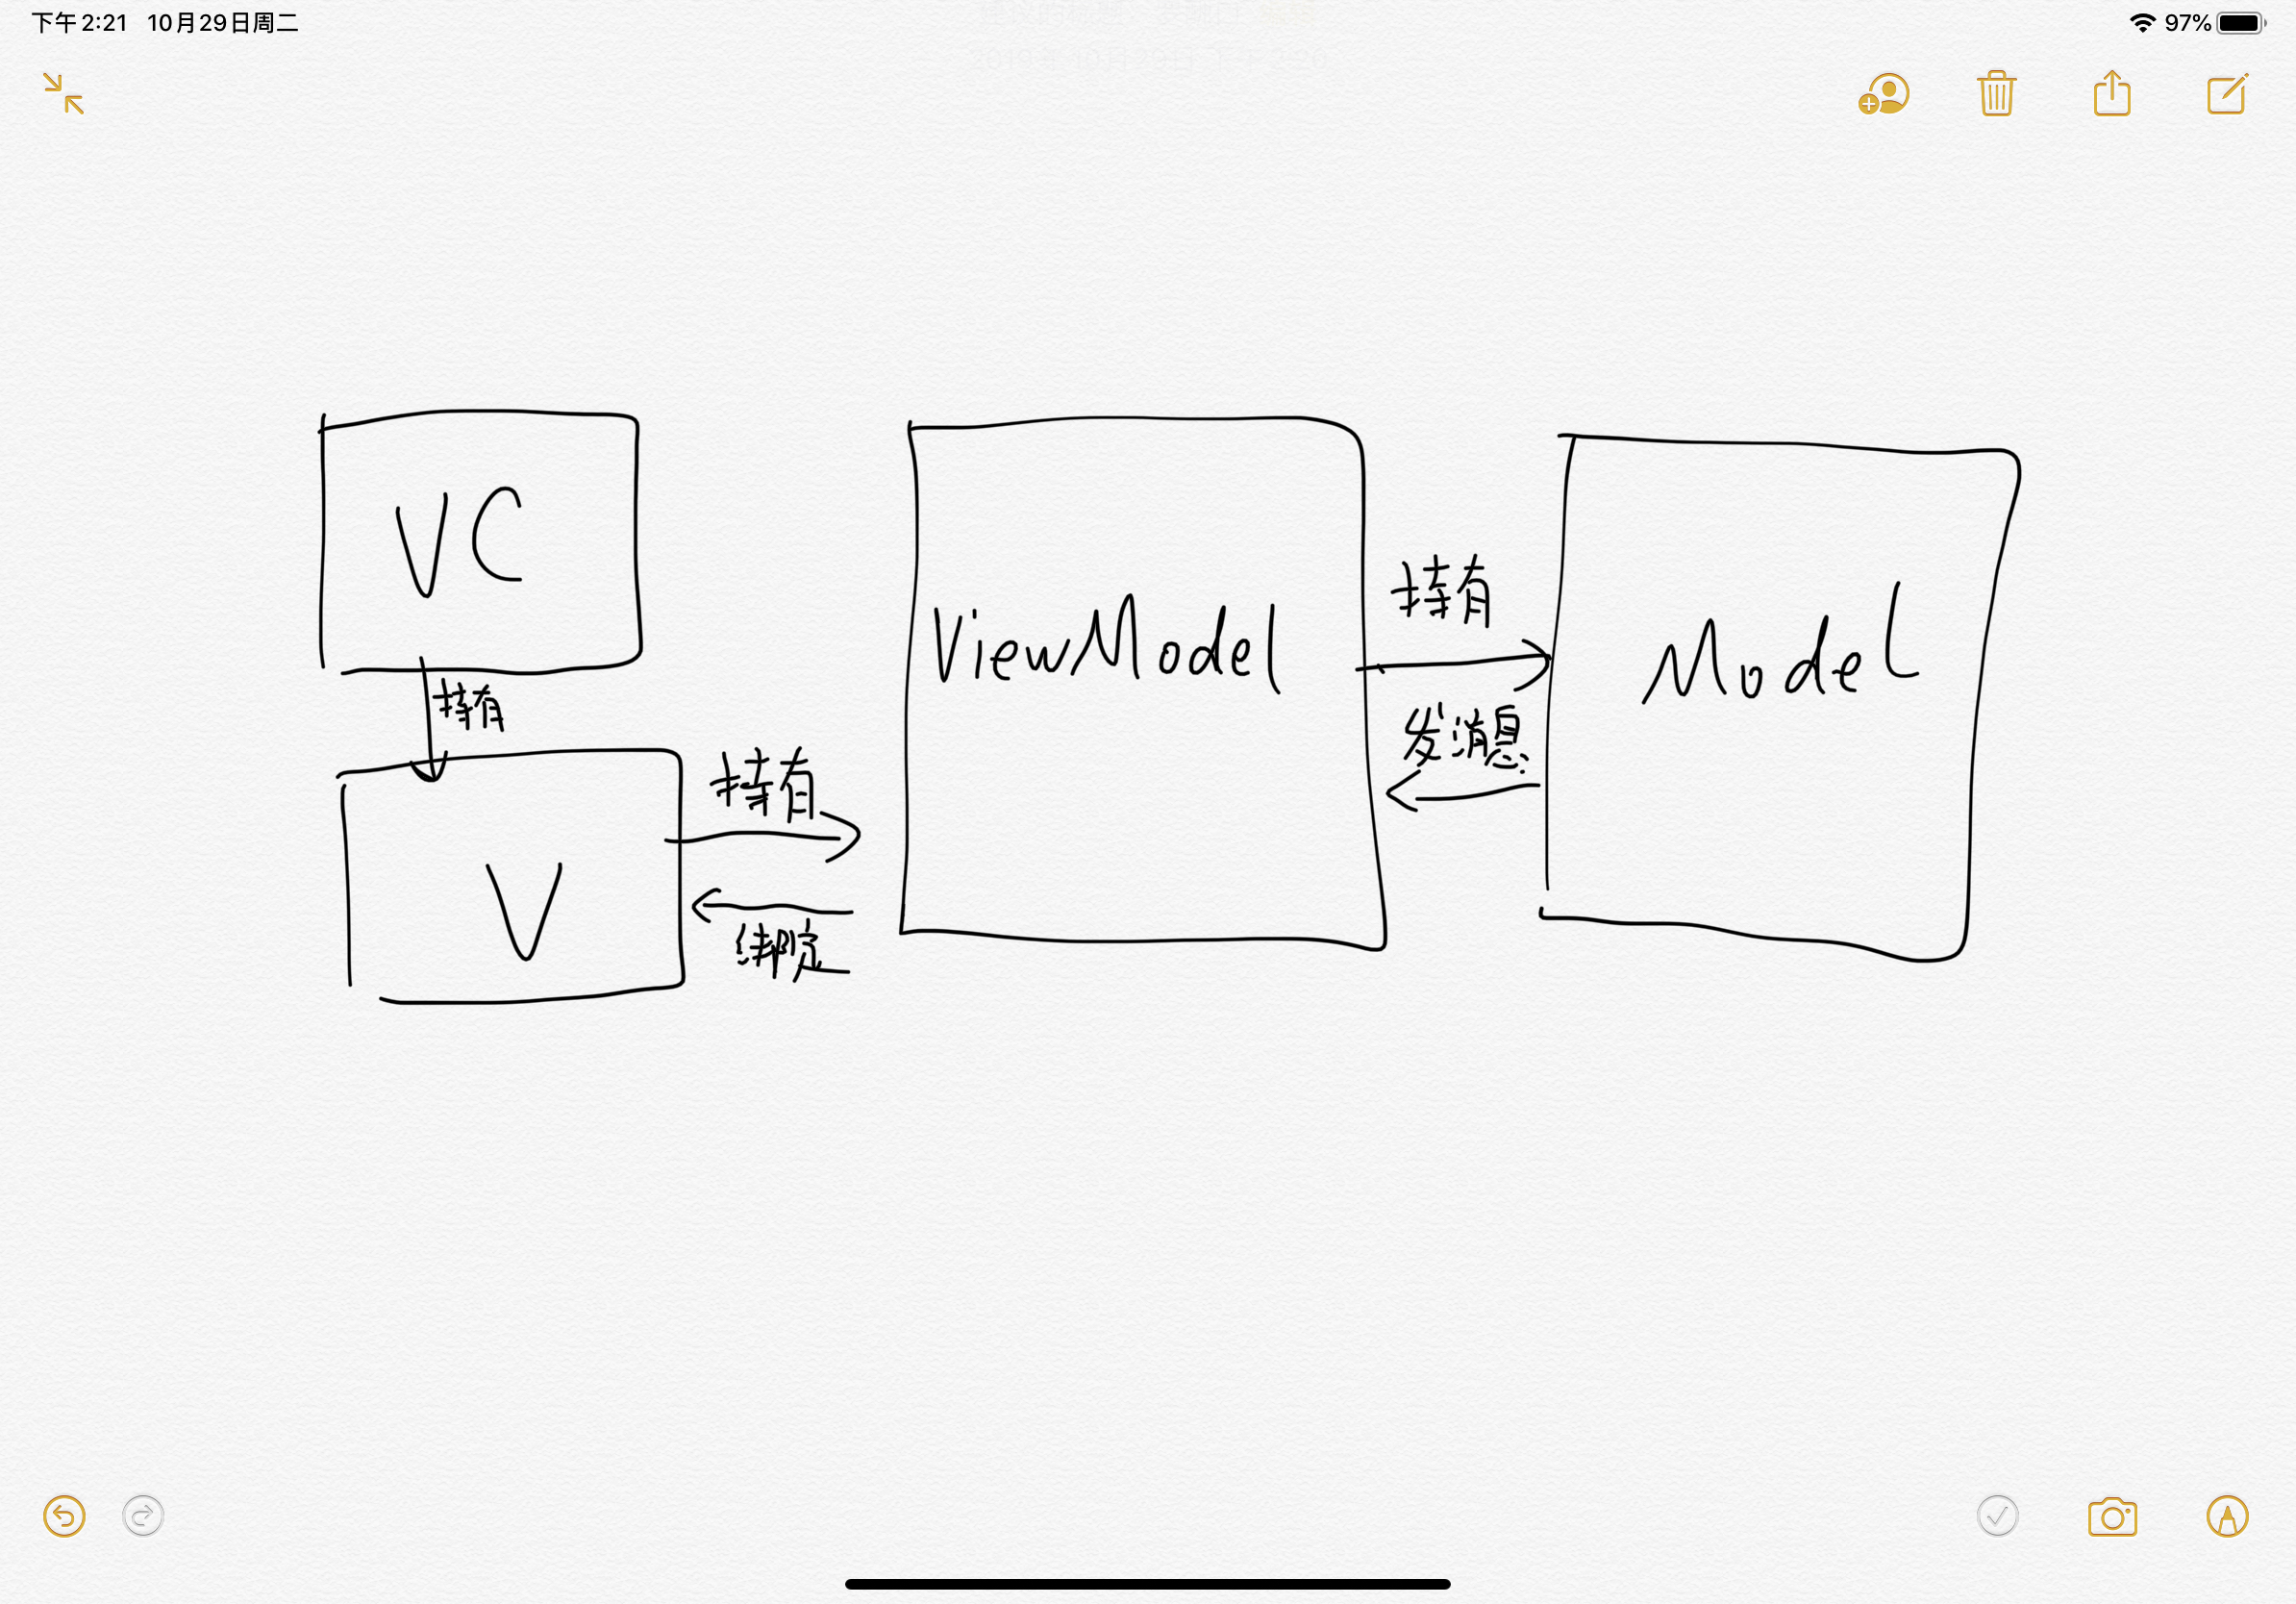 下午2:21 10月29日周二
97%
VC
持有
V
持有
绑定
ViewModel
持有
发消息
Model